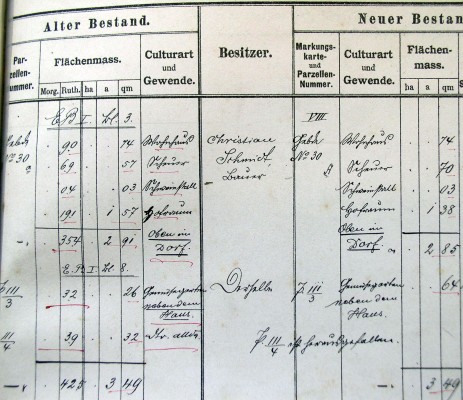 Alter Bestand.
Neuer Bestan
Par-
zellen-
nummer.
Flächenmass.
Morg. Ruth. ha a qm
Culturart
und
Gewende.
Besitzer.
Markungs-
karte
und
Parzellen-
Nummer.
Culturart
und
Gewende.
Flächen-
mass.
ha a qm
E.B. I. Bl. 3.
VIII.
Gebde 90 74 Wohnhaus Christian Gebde Wohnhaus 74
No 30 69 57 Scheuer Schmidt, No 30 Scheuer 70
04 03 Schweinstall Bauer Schweinstall 03
191 1 57 Hofraum Hofraum 1 38
354 2 91 Oben im Dorf. Oben im Dorf. 2 85
E.B. I. Bl. 8.
P. III/3 32 26 Gemüsegarten neben dem Haus. Derselbe P. III/3 Gemüsegarten neben dem Haus. 64
III/4 39 32 dto. allda P. III/4 ist herausgefallen.
425 3 49 3 49